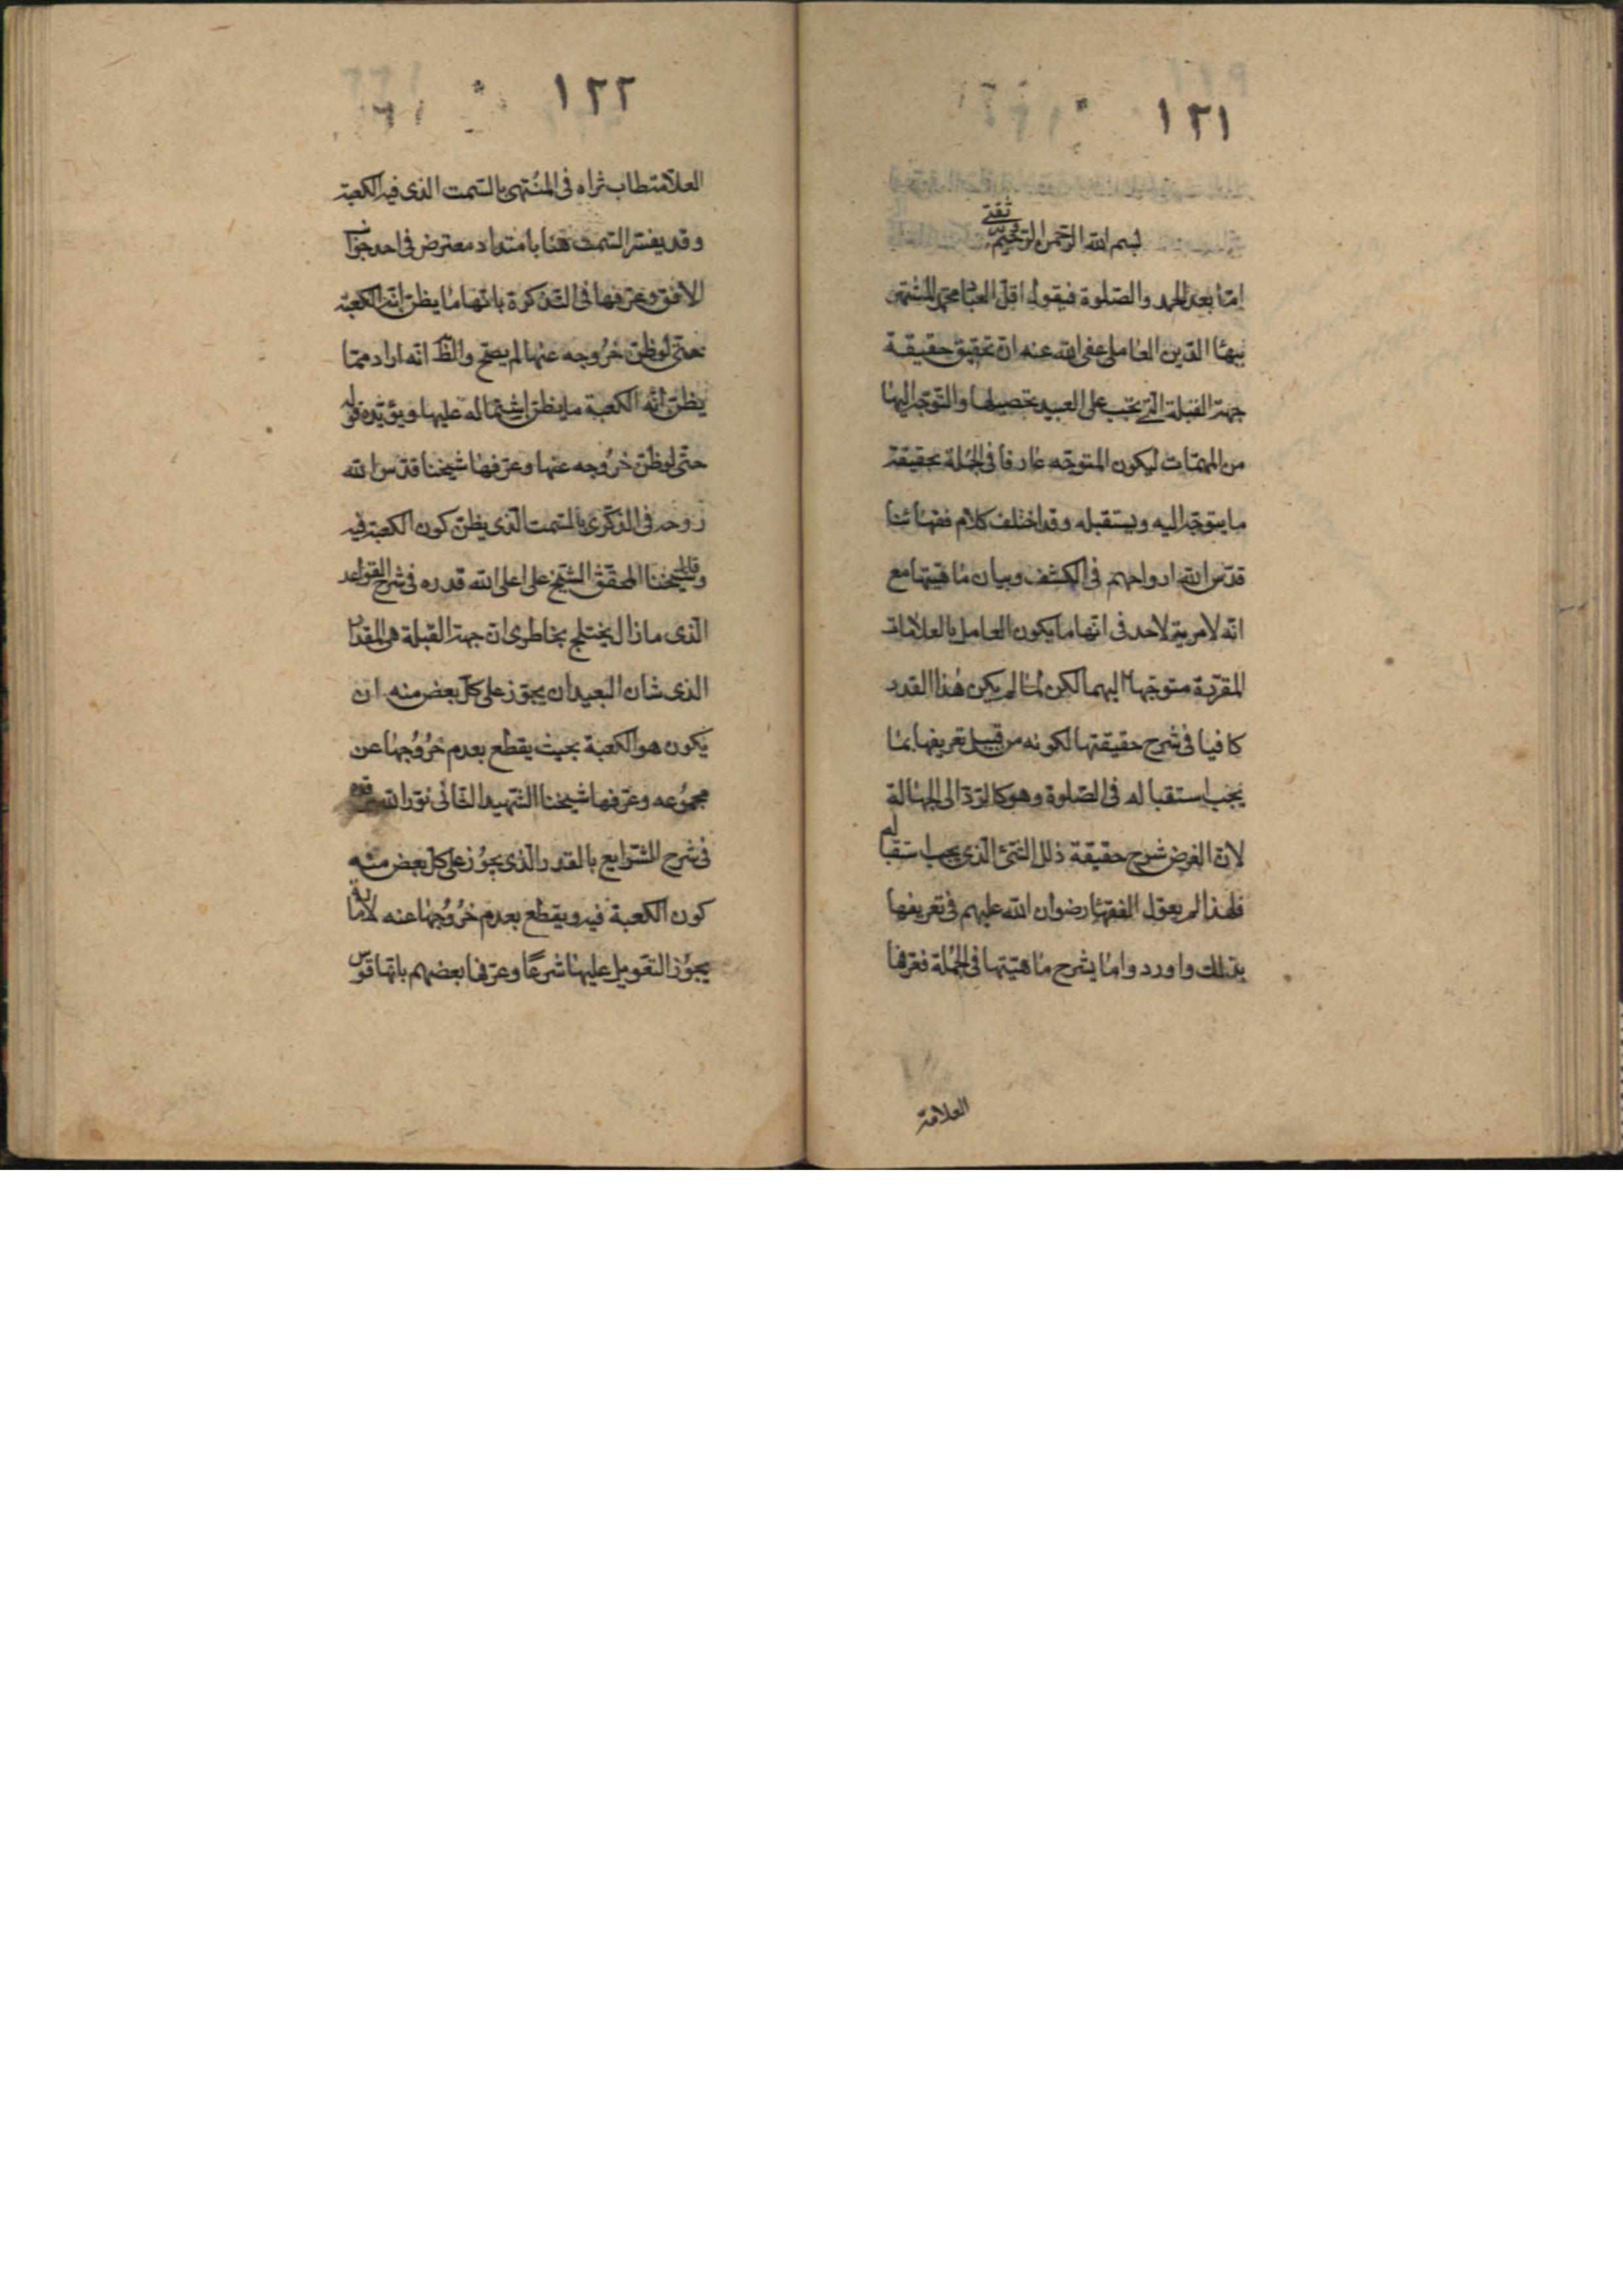 ١٢١
بسم الله الرحمن الرحيم وبه ثقتي
امّا بعد الحمد والصّلوة فيقول اقلّ العباد محمّد المشتهر
ببهاء الدّين العاملي عفى الله عنه انّ تحقيق حقيقة
جهة القبلة الّتي يجب على البعيد تحصيلها والتّوجّه اليها
من المهمّات ليكون المتوجّه عارفا فى الجملة بحقيقة
ما يتوجّه اليه ويستقبله وقد اختلف كلام فقهائنا
قدّس الله ارواحهم فى الكشف وبيان ماهيّتها مع
انّه لا مرية لاحد فى انّها ما يكون العامل بالعلامات
المقرّبة متوجّها اليهما لكن لمّا لم يكن هذا القدر
كافيا فى شرح حقيقتها لكونه من قبيل تعريفها بما
يجب استقباله فى الصّلوة وهو كالردّ الى الجهالة
لانّ الغرض شرح حقيقة ذلك الشّئ الّذى يجب استقباله
فلهذا لم يعوّل الفقهاء رضوان الله عليهم فى تعريفها
بذلك واوردوا ما يشرح ماهيّتها فى الجملة فعرّفها
العلامة
١٢٢
العلامة طاب ثراه فى المنتهى بالسّمت الذى فيه الكعبة
وقد يفسّر السّمت هنا بامتداد معترض فى احد جوانب
الافق وعرّفها فى التّذكرة بانّها ما يظنّ انّه الكعبة
حتّى لو ظنّ خروجه عنها لم يصحّ والظّ انّه اراد ممّا
يظنّ انّه الكعبة ما يظنّ اشتماله عليها ويؤيّده قوله
حتّى لو ظنّ خروجه عنها وعرّفها شيخنا قدّس الله
روحه فى الذكرى بالسّمت الّذى يظنّ كون الكعبة فيه
وقال شيخنا المحقّق الشّيخ على اعلى الله قدره فى شرح القواعد
الّذى ما زال يختلج بخاطرى انّ جهة القبلة هى المقدار
الذى شان البعيد ان يجوّز على كلّ بعض منه ان
يكون هو الكعبة بحيث يقطع بعدم خروجها عن
مجموعه وعرّفها شيخنا الشّهيد الثّانى نوّر الله مرقده
فى شرح الشّرايع بالقدر الّذى يجوّز على كلّ بعض منه
كون الكعبة فيه ويقطع بعدم خروجها عنه لامارة
يجوز التّعويل عليها شرعًا وعرّفها بعضهم بانّها قوس